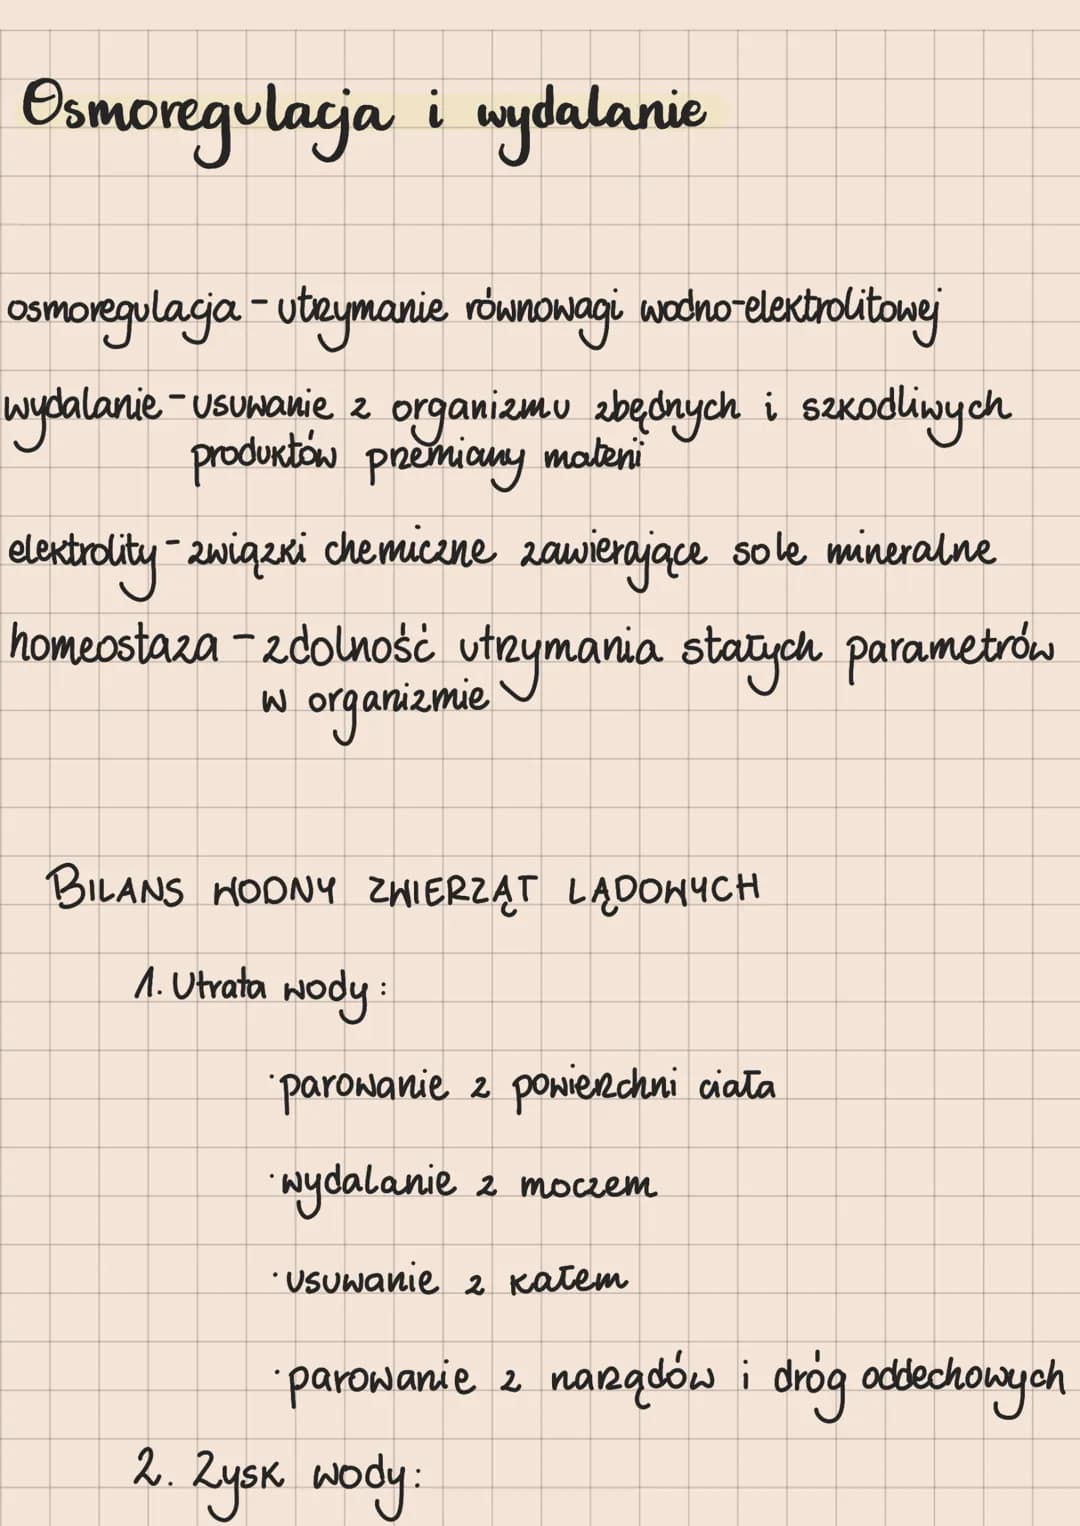 Osmoregulacja i wydalanie
osmoregulacja - utrzymanie równowagi wodno-elektrolitowej
wydalanie - usuwanie z organizmu zbędnych i szkodliwych
produktów przemiany materii
elektrolity - związki chemiczne zawierające sole mineralne
homeostaza - zdolność utrzymania stałych parametrów
w organizmie
BILANS WODNY ZWIERZĄT LĄDOWYCH
1. Utrata wody:
·parowanie z powierzchni ciała
·wydalanie z moczem
·usuwanie z kałem
·parowanie z narządów i dróg oddechowych
2. Zysk wody: